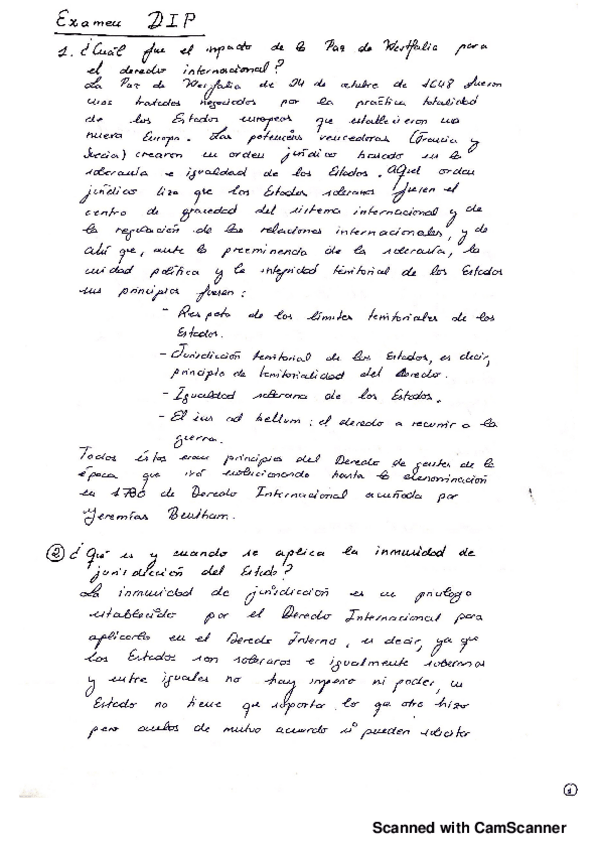 Examen DIP
1. ¿Cuál fue el impacto de la Paz de Westfalia para
el derecho internacional?
La Paz de Westfalia de 24 de octubre de 1648 fueron
unos tratados negociados por la práctica totalidad
de los Estados europeos que establecieron una
nueva Europa. Las potencias vencedoras (Francia y
Suecia) crearon un orden jurídico basado en la
soberanía e igualdad de los Estados. Aquel orden
jurídico hizo que los Estados soberanos fuesen el
centro de gravedad del sistema internacional y de
la regulación de las relaciones internacionales, y de
ahí que, ante la preeminencia de la soberanía, la
unidad política y la integridad territorial de los Estados
sus principios fuesen:
- Respeto de los límites territoriales de los
Estados.
- Jurisdicción territorial de los Estados, es decir,
principio de territorialidad del Derecho.
- Igualdad soberana de los Estados.
- El ius ad bellum: el derecho a recurrir a la
guerra.
Todos éstos eran principios del Derecho de gentes de la
época que irá evolucionando hasta la denominación
en 1780 de Derecho Internacional acuñada por
Jeremías Bentham.
② ¿Qué es y cuando se aplica la inmunidad de
jurisdicción del Estado?
La inmunidad de jurisdicción es un
establecido por el Derecho Internacional para
aplicarlo en el Derecho Interno, es decir, ya que
los Estados son soberanos e igualmente soberanos
y entre iguales no hay imperio ni poder, un
Estado no tiene que soportar lo que otro hizo
pero ambos de mutuo acuerdo si pueden solicitar
1
Scanned with CamScanner